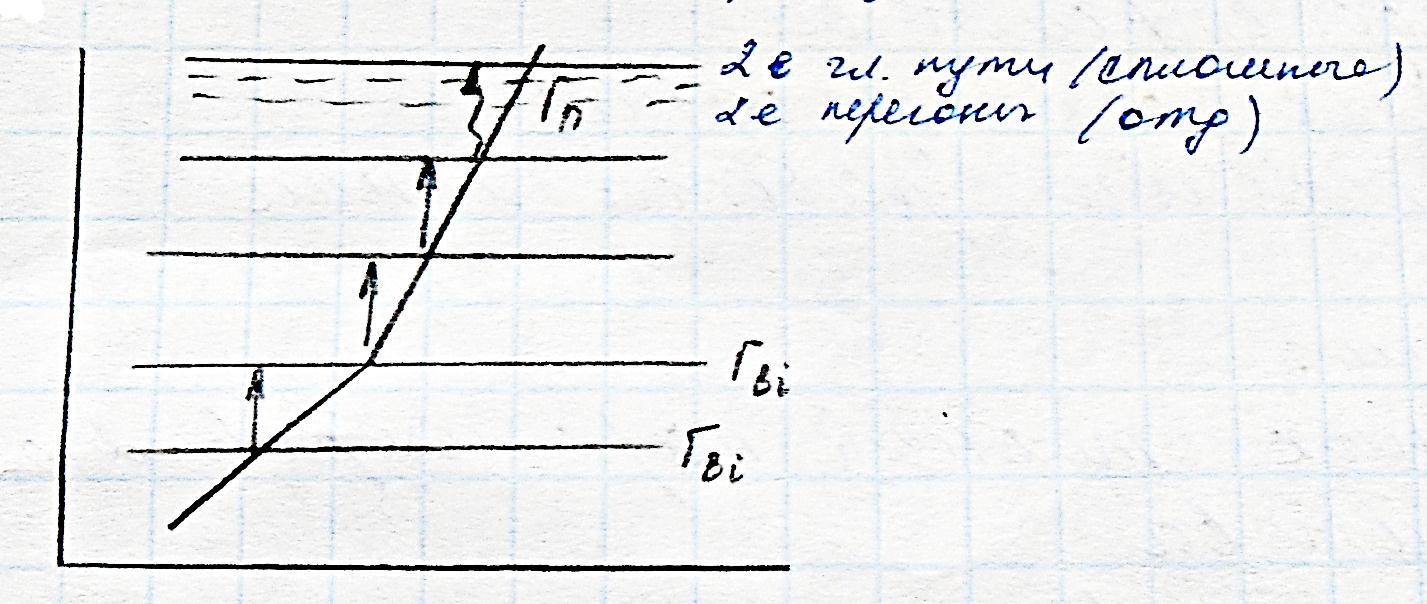 2е гл. пути (сплошные)
Гп
2е перегоны (отд)
Гвi
Гвi